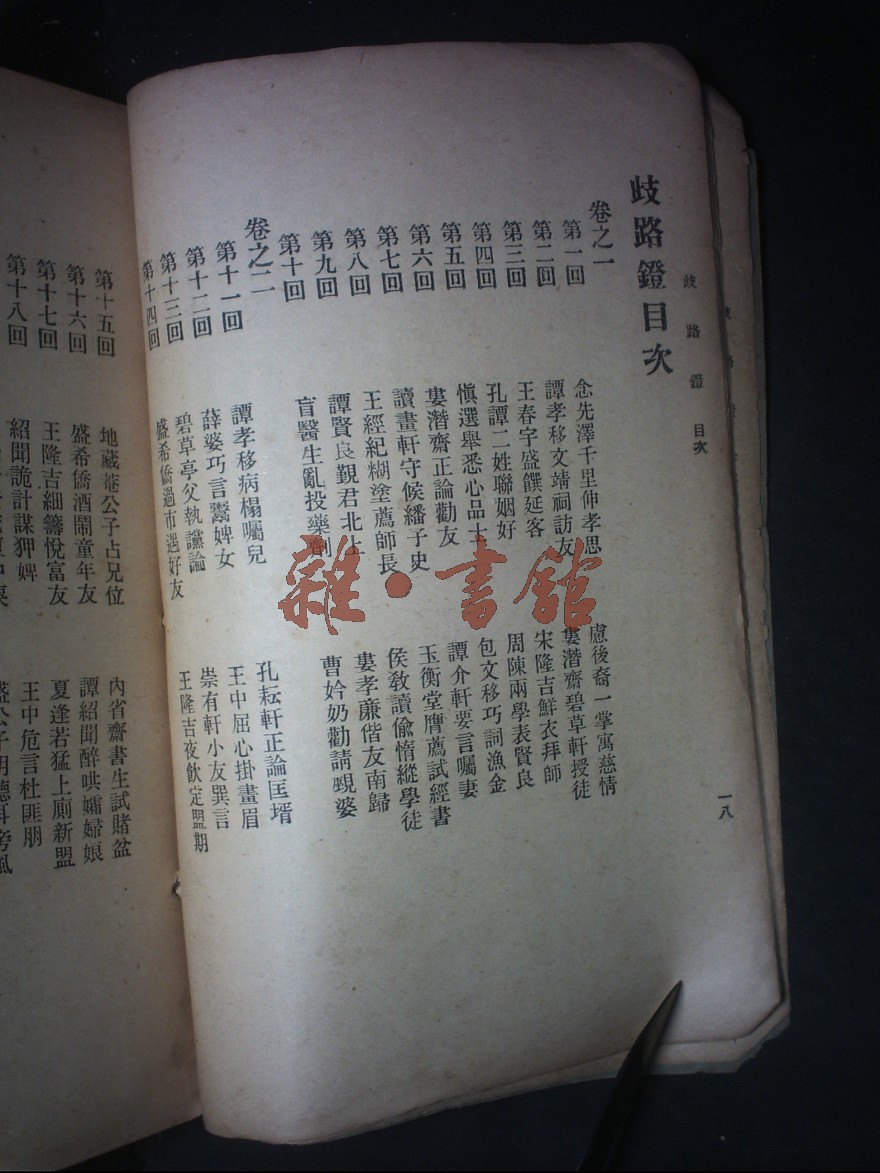 歧路鐙 目次
一八
歧路鐙目次
卷之一
第一回 念先澤千里伸孝思 慮後裔一掌寓慈情
第二回 譚孝移文靖祠訪友 婁潛齋碧草軒授徒
第三回 王春宇盛饌延客 宋隆吉鮮衣拜師
第四回 孔譚二姓聯姻好 周陳兩學表賢良
第五回 愼選舉悉心品士 包文移巧詞漁金
第六回 婁潛齋正論勸友 譚介軒要言囑妻
第七回 讀畫軒守候繙子史 玉衡堂膺薦試經書
第八回 王經紀糊塗薦師長 侯敎讀偸惰縱學徒
第九回 譚賢良覲君北上 婁孝廉偕友南歸
第十回 盲醫生亂投藥劑 曹妗奶勸請覡婆
卷之二
第十一回 譚孝移病榻囑兒 孔耘軒正論匡壻
第十二回 薛婆巧言鬻婢女 王中屈心掛畫眉
第十三回 碧草亭父執讜論 崇有軒小友巽言
第十四回 盛希僑過市遇好友 王隆吉夜飮定盟期
第十五回 地藏菴公子占兄位 內省齋書生試賭盆
第十六回 盛希僑酒鬧童年友 譚紹聞醉哄孀婦娘
第十七回 王隆吉細籌悅富友 夏逢若猛上廁新盟
第十八回 紹聞詭計謀狎婢 王中危言杜匪朋
雜·書館